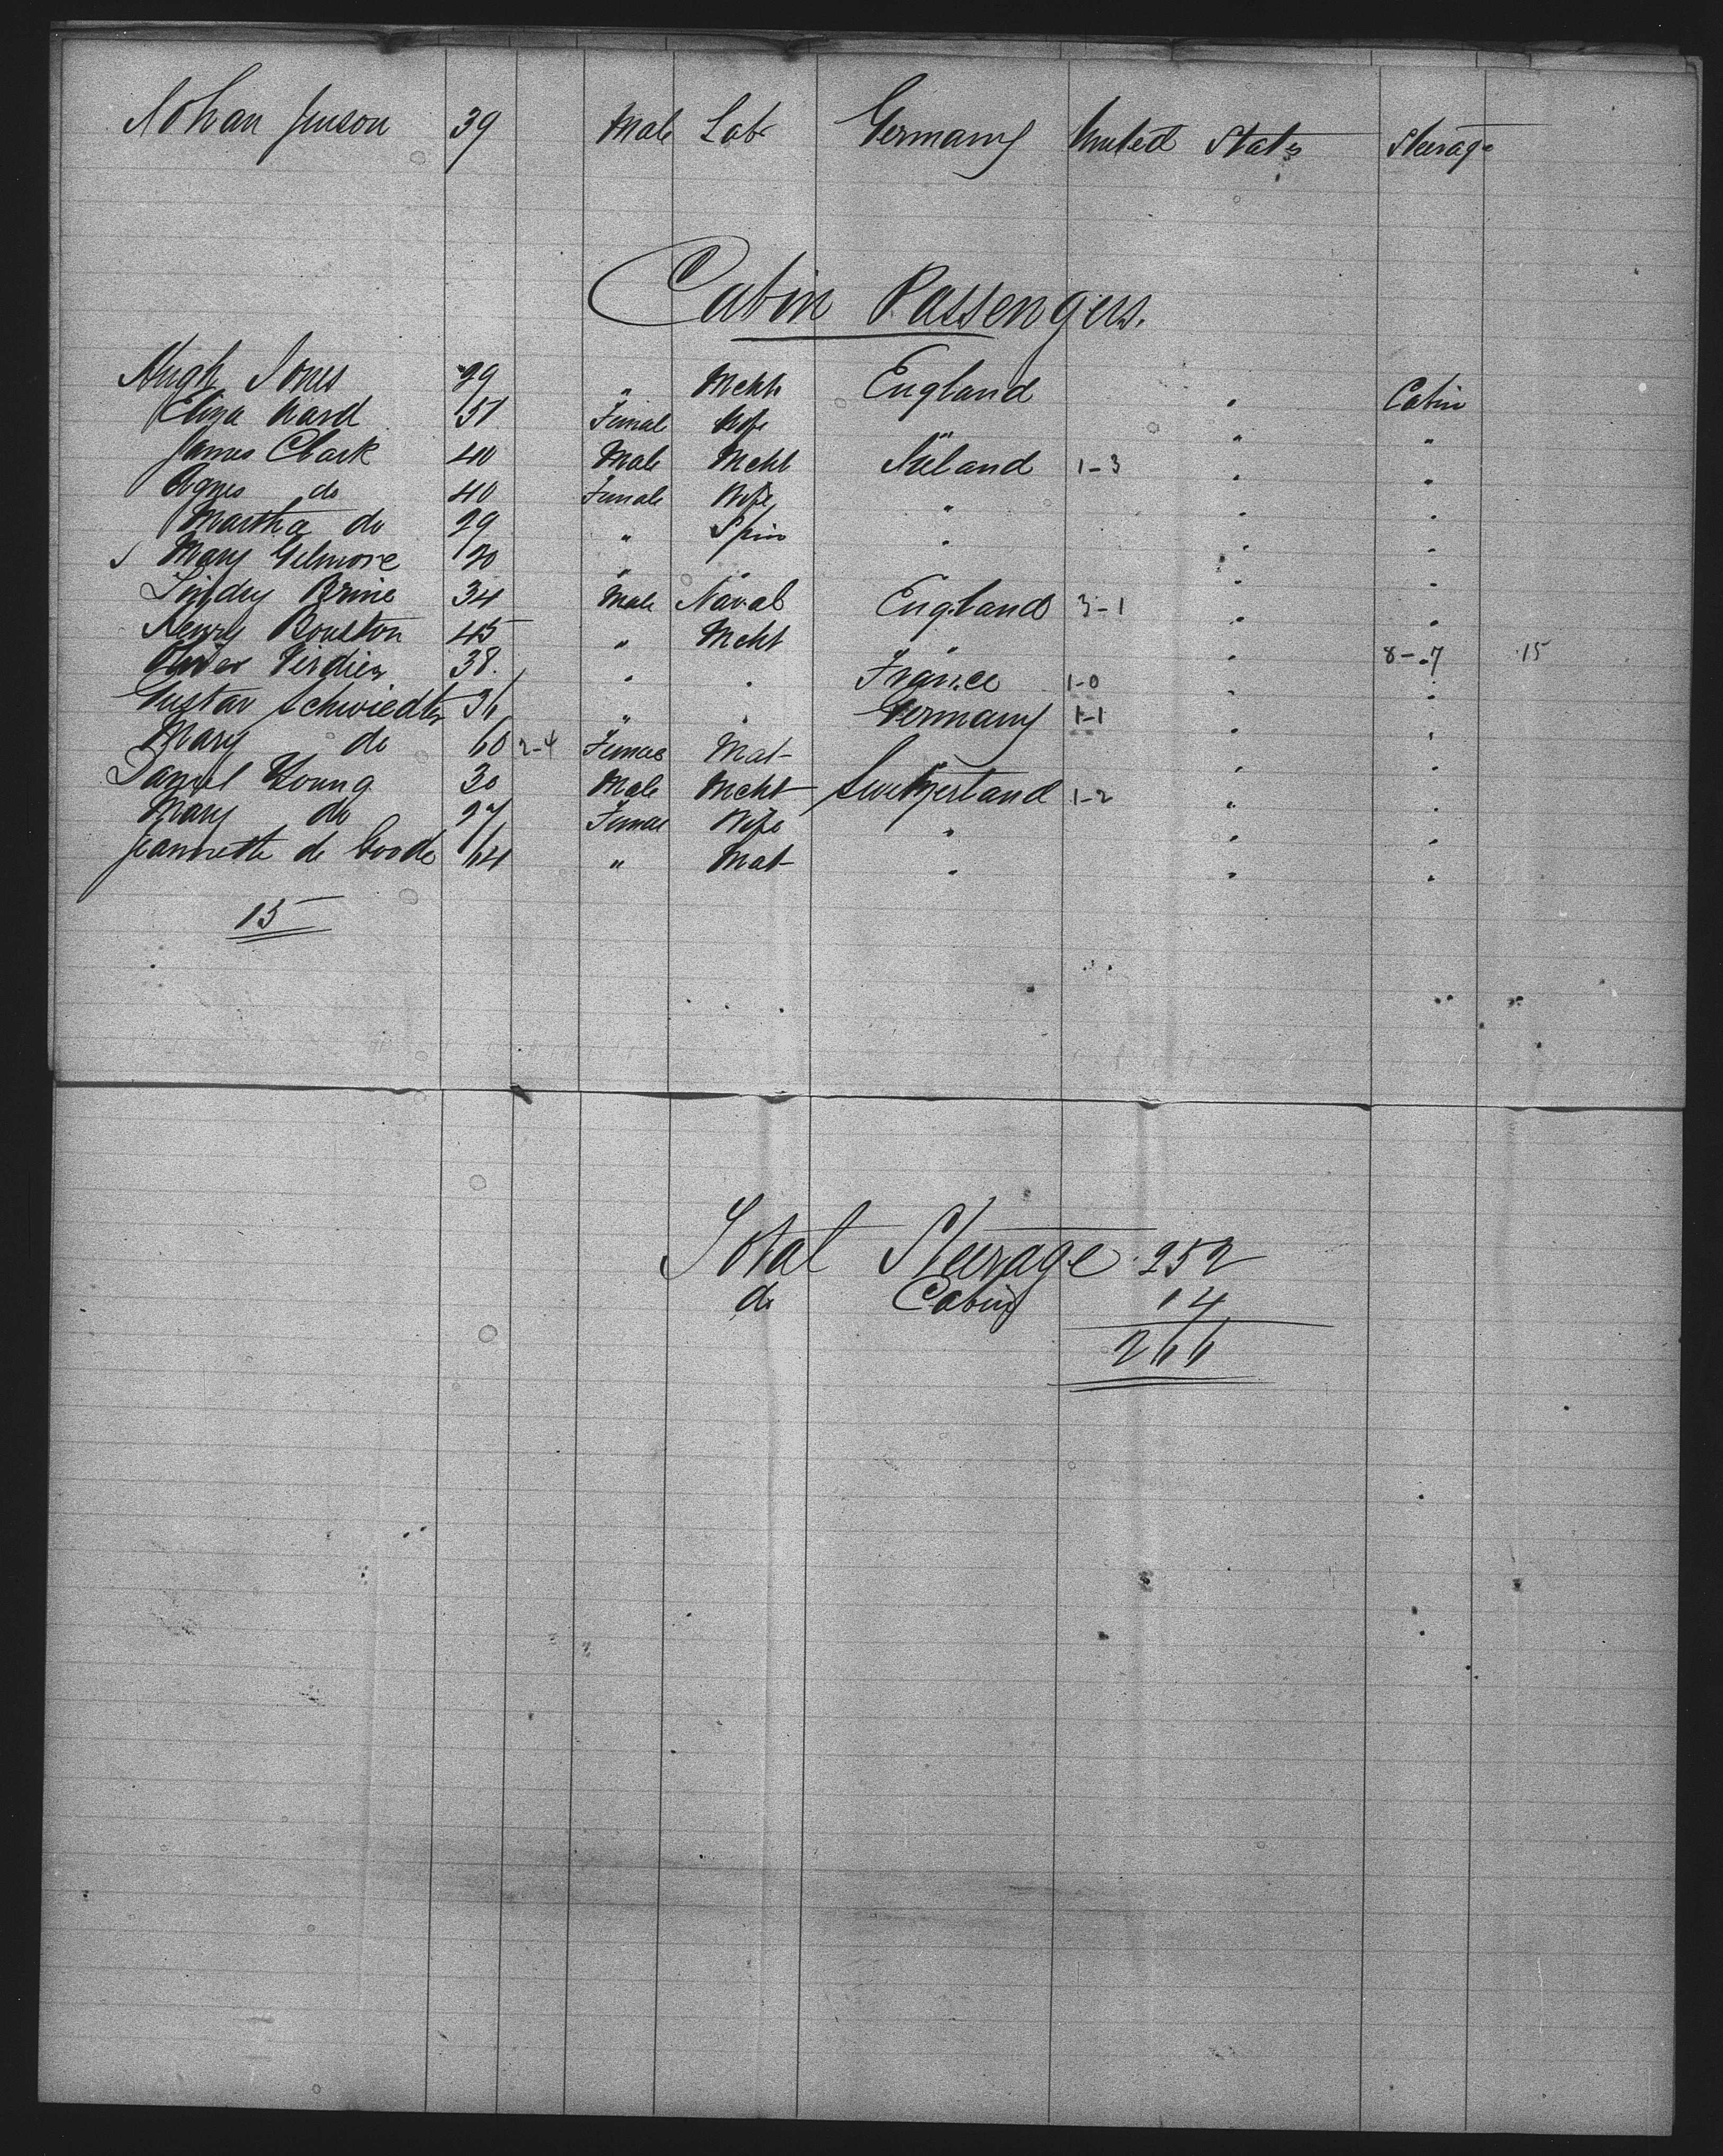 Johan Jenson 39 Male Lab Germany United States Steerage
Cabin Passengers.
Hugh Jones 29 " Mcht England " Cabin
Eliza Ward 37 Female Wife " " "
James Clark 40 Male Mcht Ireland 1-3 " "
Agnes do 40 Female Wife " " "
Martha do 29 " Spin " " "
Mary Gilmore 20 " " " "
Lindsey Brine 34 Male Naval England 3-1 " "
Henry Boulton 45 " Mcht " " 8-7 15
Verdier 38 " " France 1-0 " "
Gustav Schwiedler 36 " " Germany 1-1 " "
Mary do 60 2-4 Female Mat " " "
Daniel Young 30 Male Mcht Switzerland 1-2 " "
Mary do 27 Female Wife " " "
Jeannette de 64 " Mat " " "
15
Total Steerage 252
do Cabin 14
266